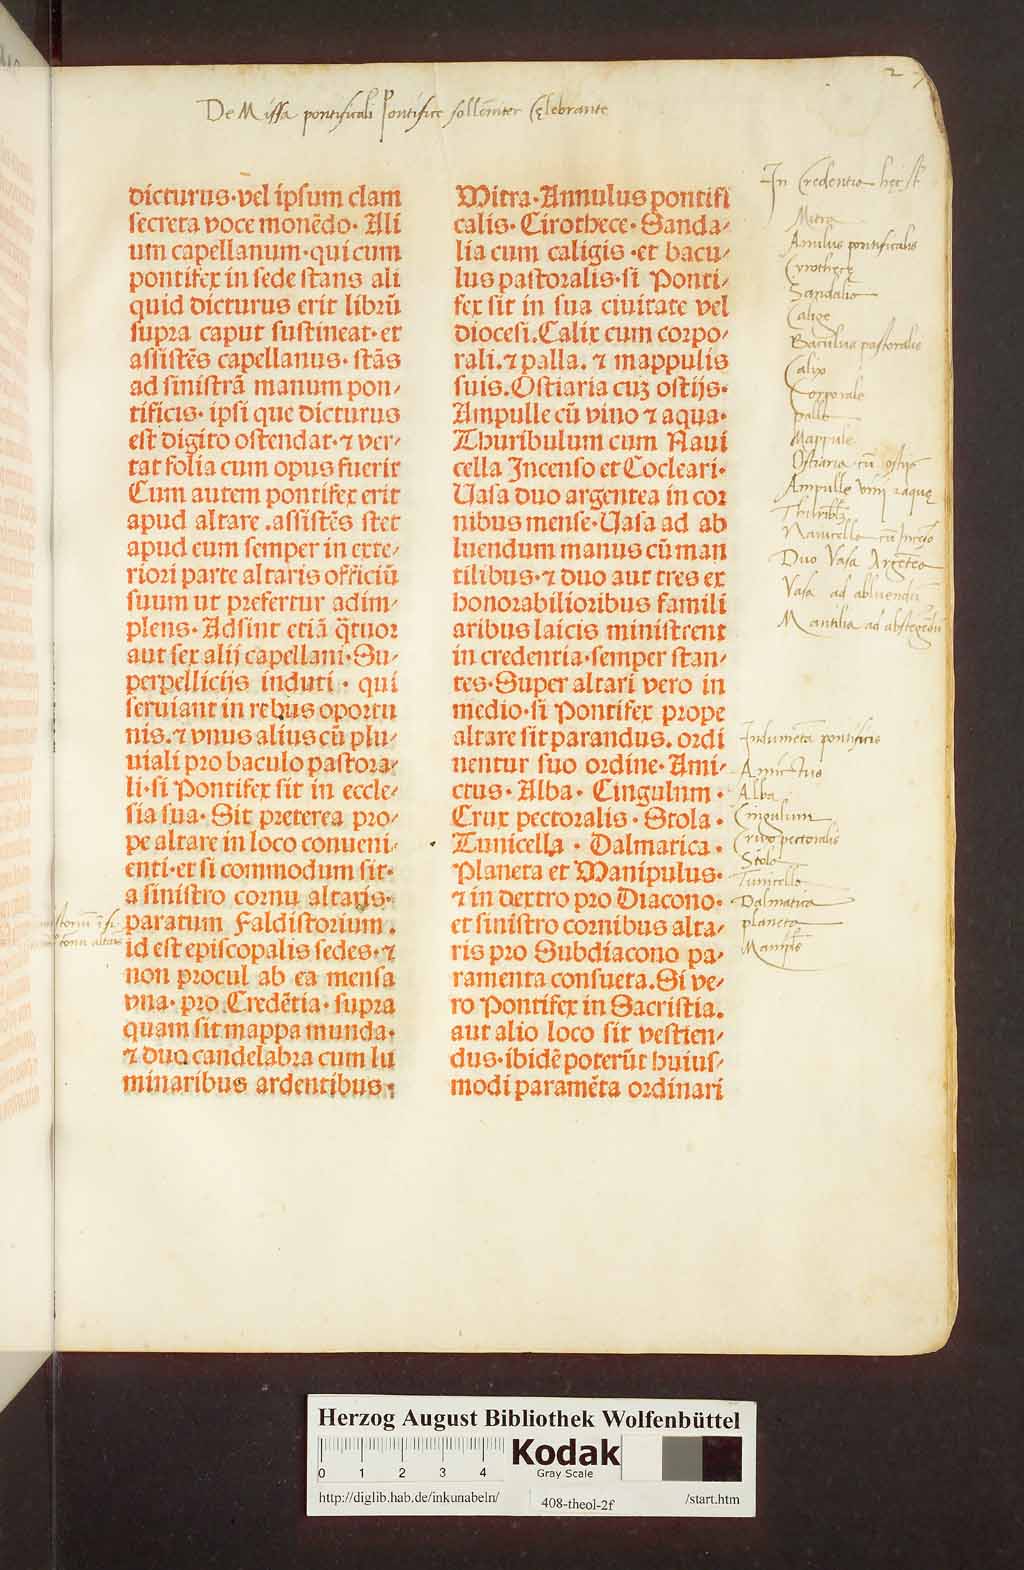 De Missa pontificali Pontifice sollēniter cęlebrante
2
dicturus·vel ipsum clam
secreta voce monēdo· Ali
um capellanum·qui cum
pontifex in sede stans ali
quid dicturus erit librū
supra caput sustineat·et
assistēs capellanus· stās
ad sinistrā manum pon-
tificis· ipsi que dicturus
est digito ostendat·⁊ ver-
tat folia cum opus fuerit
Cum autem pontifex erit
apud altare .assistēs stet
apud eum semper in exte-
riori parte altaris officiū
suum ut prefertur adim-
plens· Adsint etiā q̄tuor
aut sex alij capellani·Su-
perpellicijs induti · qui
seruiant in rebus oportu
nis.⁊ vnus alius cū plu-
uiali pro baculo pastora-
li·si Pontifex sit in eccle-
sia sua· Sit preterea pro-
pe altare in loco conueni-
enti·et si commodum sit·
a sinistro cornu altaris·
paratum Faldistorium.
id est episcopalis sedes·⁊
non procul ab ea mensa
vna· pro Credētia· supra
quam sit mappa munda·
⁊ duo candelabra cum lu
minaribus ardentibus·
Mitra·Annulus pontifi
calis· Cirothece· Sanda-
lia cum caligis ·et bacu-
lus pastoralis·si Ponti-
fex sit in sua ciuitate vel
diocesi.Calix cum corpo-
rali.⁊ palla. ⁊ mappulis
suis.Ostiaria cuʒ ostijs·
Ampulle cū vino ⁊ aqua·
Thuribulum cum Naui
cella Incenso et Cocleari·
Uasa duo argentea in cor
nibus mense·Uasa ad ab
luendum manus cū man
tilibus·⁊ duo aut tres ex
honorabilioribus famili
aribus laicis ministrent
in credentia·semper stan-
tes·Super altari vero in
medio·si Pontifex prope
altare sit parandus. ordi
nentur suo ordine· Ami-
ctus· Alba· Cingulum ·
Crux pectoralis · Stola ·
Tunicella · Dalmatica ·
Planeta et Manipulus·
⁊ in dextro pro Diacono·
et sinistro cornibus alta-
ris pro Subdiacono pa-
ramenta consueta. Si ve-
ro Pontifex in Sacristia.
aut alio loco sit vestien-
dus·ibidē poterūt huius-
modi paramēta ordinari
In Credentia hęc sūt
Mitra
Anulus pontificalis
Cyrothecę
Sandalia
Calige
Baculus pastoralis
Calix
Corporale
palle
Mappule
Ostiaria cū ostijs
Ampulle vini ⁊ aquę
Nauicella cū Incēso
Duo Vasa Argētea
Vasa ad abluendū
Mantilia ad abstergēdū
Indumēta pontificis
Amictus
Alba
Cingulum
Crux pectoralis
Stola
Tunicella
Dalmatica
planeta
Herzog August Bibliothek Wolfenbüttel
0 1 2 3 4
Kodak
Gray Scale
http://diglib.hab.de/inkunabeln/
408-theol-2f
/start.htm